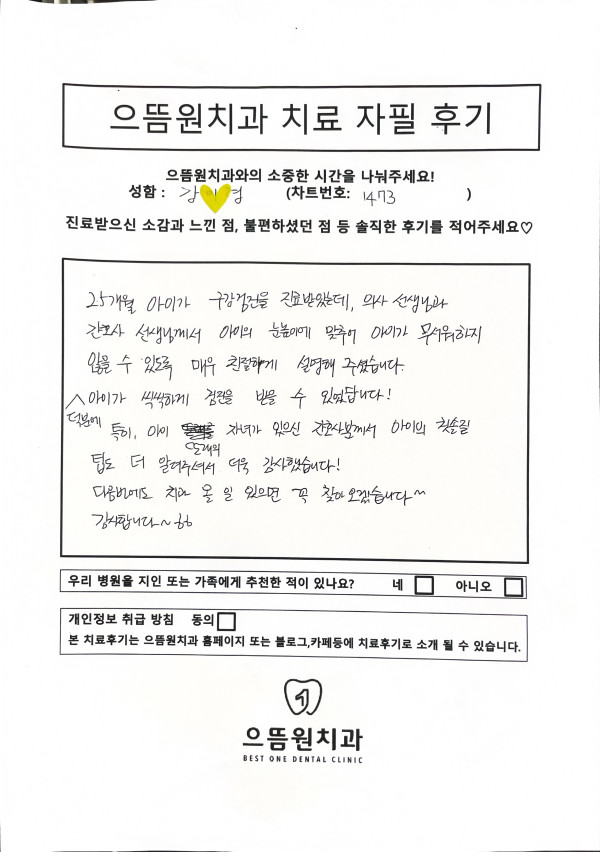 으뜸원치과 치료 자필 후기
으뜸원치과와의 소중한 시간을 나눠주세요!
성함 : 강 경 (차트번호: 1473 )
진료받으신 소감과 느낀 점, 불편하셨던 점 등 솔직한 후기를 적어주세요♡
25개월 아이가 구강검진을 진료받았는데, 의사 선생님과
간호사 선생님께서 아이의 눈높이에 맞추어 아이가 무서워하지
않을 수 있도록 매우 친절하게 설명해 주셨습니다.
덕분에 아이가 씩씩하게 검진을 받을 수 있었답니다!
특히, 아이 또래의 자녀가 있으신 간호사분께서 아이의 칫솔질
팁도 더 알려주셔서 더욱 감사했습니다!
다음번에도 치과 올 일 있으면 꼭 찾아오겠습니다~
감사합니다~ bb
우리 병원을 지인 또는 가족에게 추천한 적이 있나요? 네 □ 아니오 □
개인정보 취급 방침 동의 □
본 치료후기는 으뜸원치과 홈페이지 또는 블로그,카페등에 치료후기로 소개 될 수 있습니다.
으뜸원치과
BEST ONE DENTAL CLINIC